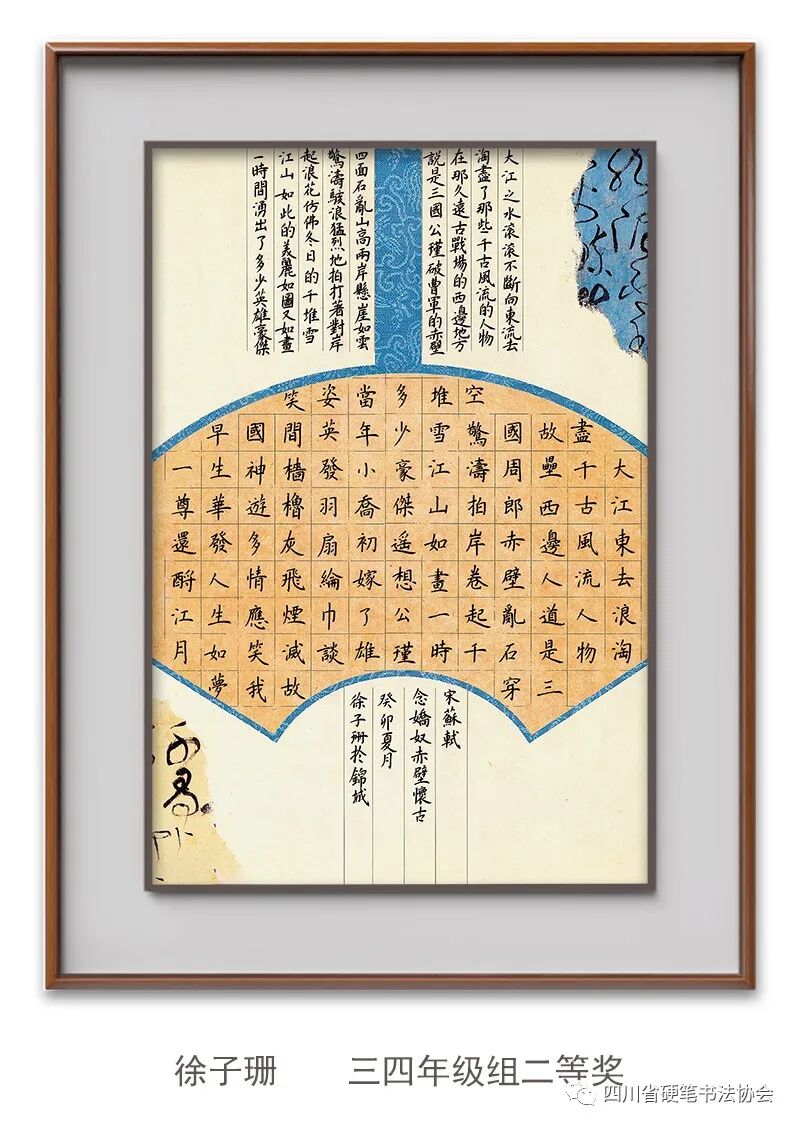 大江之水滾滾不斷向東流去
淘盡了那些千古風流的人物
在那久遠古戰場的西邊地方
說是三國公瑾破曹軍的赤壁
四面石亂山高兩岸懸崖如雲
驚濤駭浪猛烈地拍打著對岸
起浪花仿佛冬日的千堆雪
江山如此的美麗如圖又如畫
一時間湧出了多少英雄豪傑
大江東去浪淘
盡千古風流人物
故壘西邊人道是三
國周郎赤壁亂石穿
空驚濤拍岸卷起千
堆雪江山如畫一時
多少豪傑遙想公瑾
當年小喬初嫁了雄
姿英發羽扇綸巾談
笑間檣櫓灰飛煙滅故
國神遊多情應笑我
早生華發人生如夢
一尊還酹江月
宋蘇軾
念嬌奴赤壁懷古
癸卯夏月
徐子珊於錦城
徐子珊 三四年级组二等奖
四川省硬笔书法协会